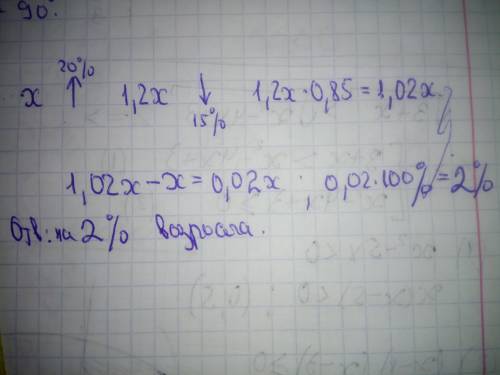 90.
20%
x ↑ 1,2x ↓ 1,2x·0,85=1,02x
15%
1,02x-x=0,02x ; 0,02·100%=2%
Отв: на 2% возросла.